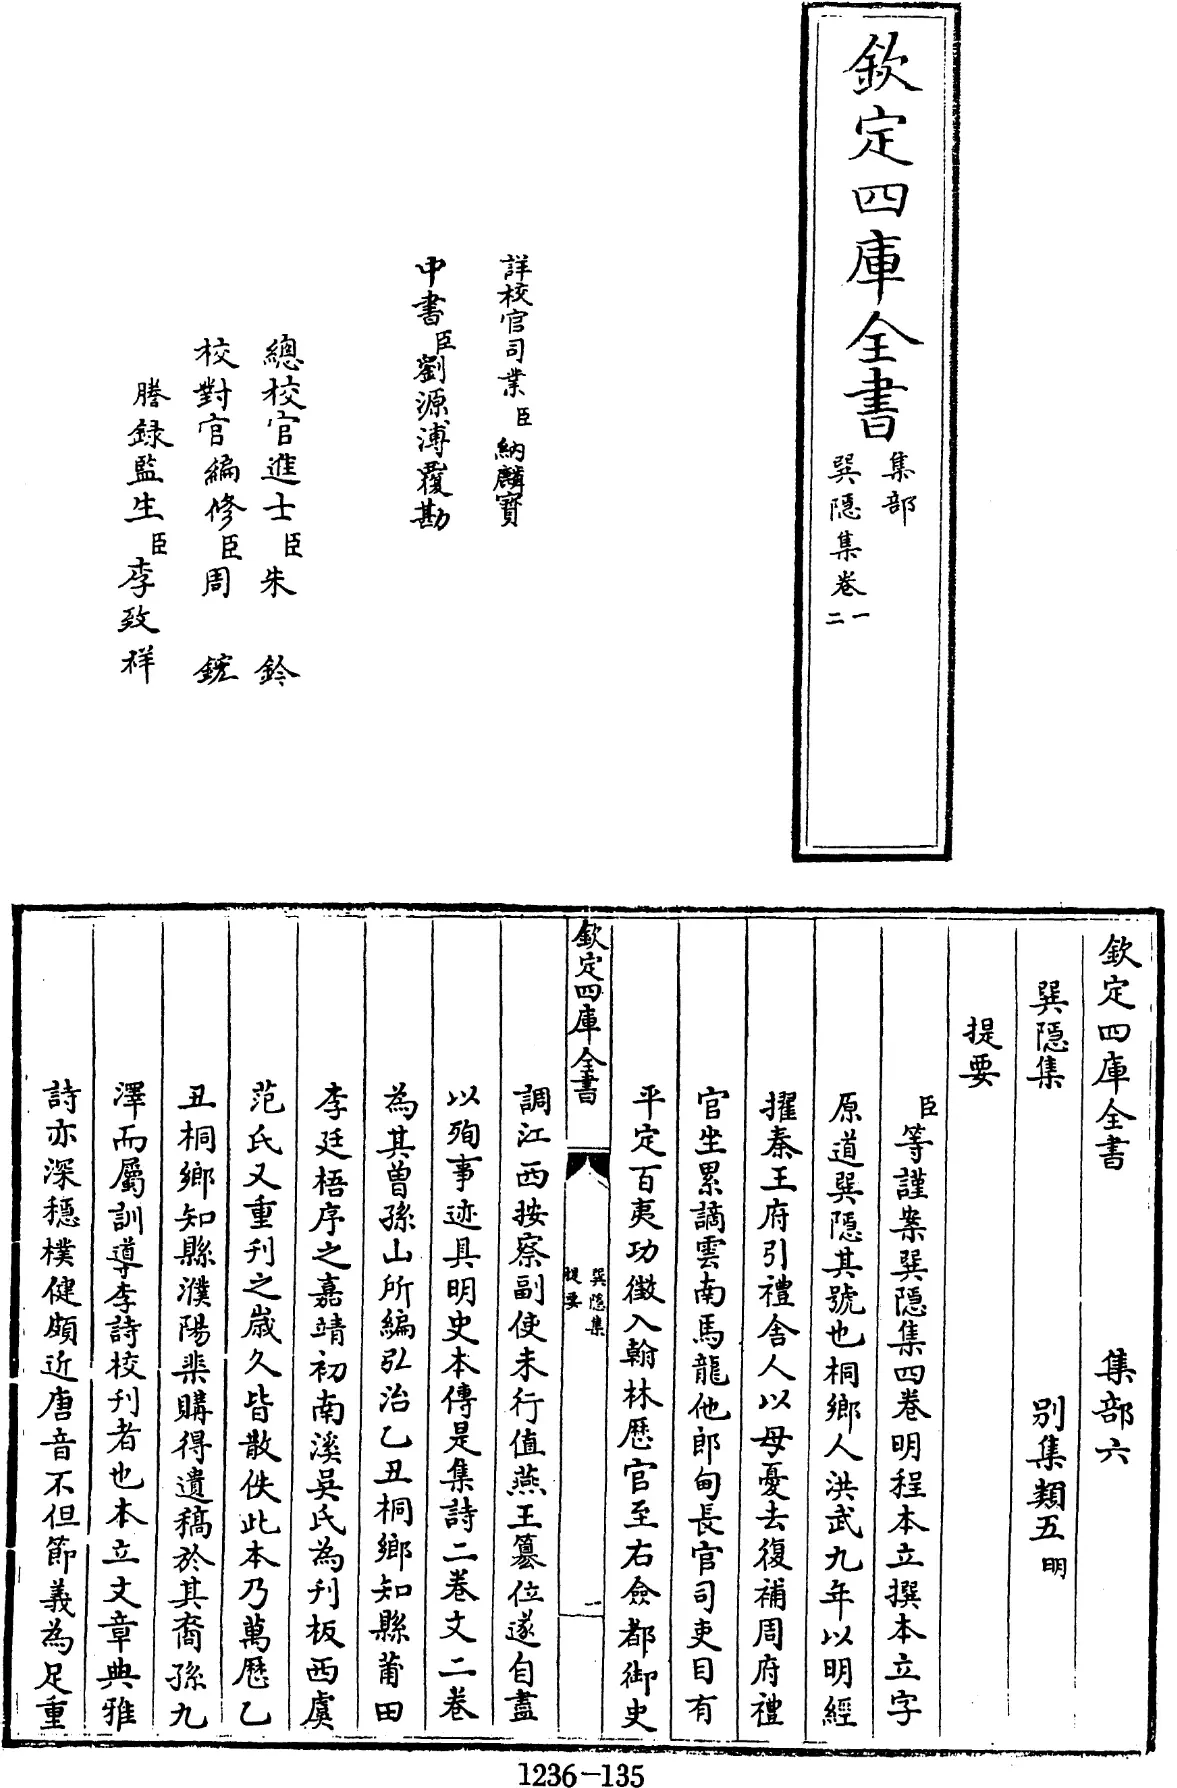 欽定四庫全書
集部
巽隠集卷一
二
詳校官司業臣納麟寶
中書臣劉源溥覆勘
總校官進士臣朱鈐
校對官編修臣周鋐
謄録監生臣李致祥
欽定四庫全書 集部六
巽隠集 别集類五明
提要
臣等謹案巽隠集四卷明程本立撰本立字
原道巽隠其號也桐鄉人洪武九年以明經
擢秦王府引禮舍人以母憂去復補周府禮
官坐累謫雲南馬龍他郎甸長官司吏目有
平定百夷功徴入翰林歴官至右僉都御史
欽定四庫全書
巽隠集
提要
一
調江西按察副使未行值燕王簒位遂自盡
以殉事迹具明史本傳是集詩二卷文二卷
為其曽孫山所編弘治乙丑桐鄉知縣莆田
李廷梧序之嘉靖初南溪吳氏為刋板西虞
范氏又重刋之嵗久皆散佚此本乃萬歴乙
丑桐鄉知縣濮陽棐購得遺稿於其裔孫九
澤而屬訓導李詩校刋者也本立文章典雅
詩亦深穏樸健頗近唐音不但節義為足重
1236-135